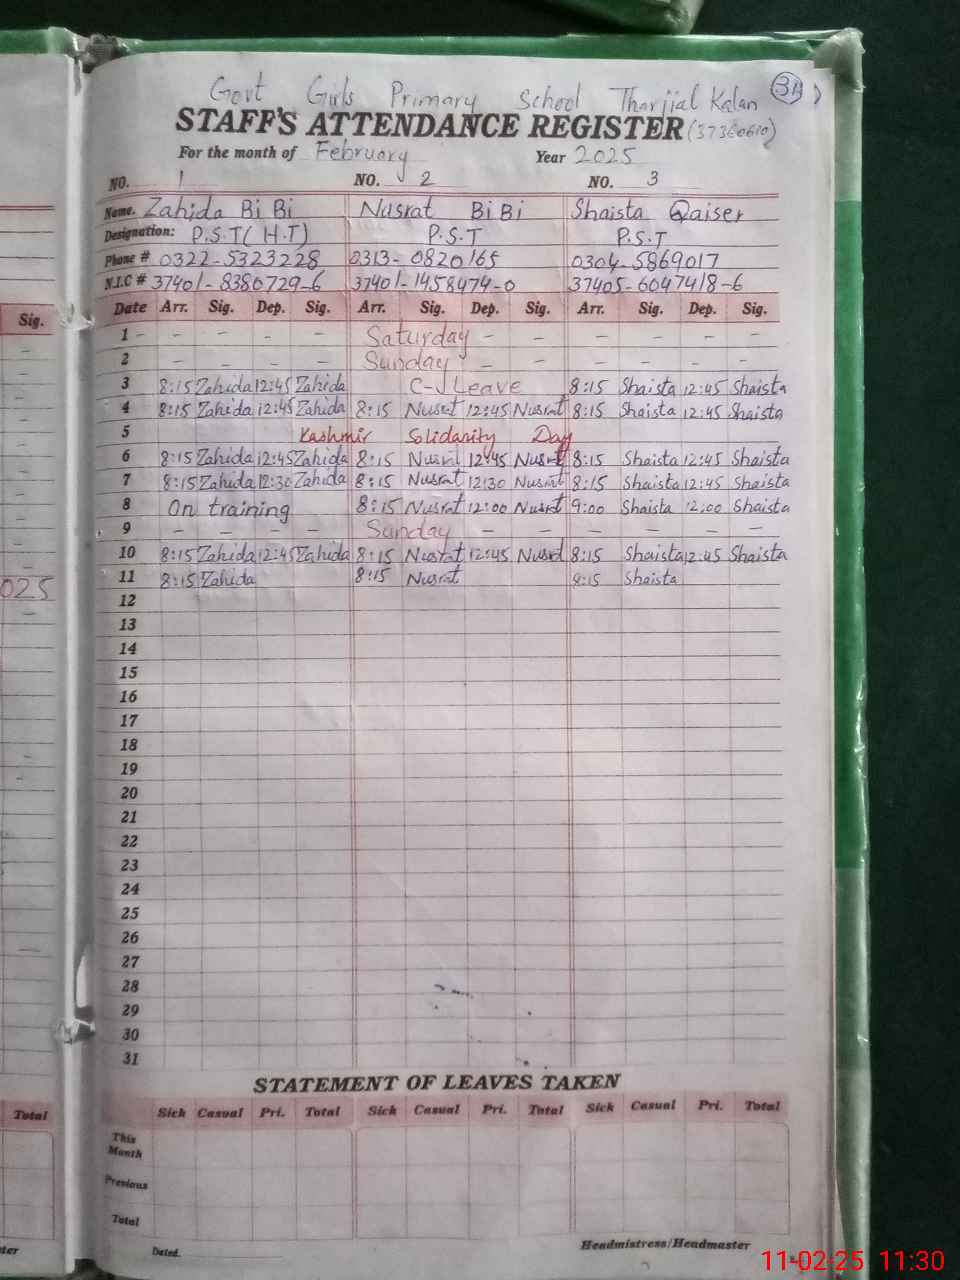 Govt Girls Primary School Tharjial Kalan
STAFF'S ATTENDANCE REGISTER (37360610)
For the month of February Year 2025
NO. 1 NO. 2 NO. 3
Name. Zahida Bi Bi Nusrat Bi Bi Shaista Qaiser
Designation: P.S.T (H.T) P.S.T P.S.T
Phone # 0322-5323228 0313-0820165 0304-5869017
N.I.C # 37401-8380729-6 37401-1458474-0 37405-6047418-6
Sig. Date Arr. Sig. Dep. Sig. Arr. Sig. Dep. Sig. Arr. Sig. Dep. Sig.
1 - - - - Saturday - - - - - -
2 - - - - Sunday - - - - - -
3 8:15 Zahida 12:45 Zahida C-Leave 8:15 Shaista 12:45 Shaista
4 8:15 Zahida 12:45 Zahida 8:15 Nusrat 12:45 Nusrat 8:15 Shaista 12:45 Shaista
5 Kashmir Solidarity Day
6 8:15 Zahida 12:45 Zahida 8:15 Nusrat 12:45 Nusrat 8:15 Shaista 12:45 Shaista
7 8:15 Zahida 12:30 Zahida 8:15 Nusrat 12:30 Nusrat 8:15 Shaista 12:45 Shaista
8 On training 8:15 Nusrat 12:00 Nusrat 9:00 Shaista 12:00 Shaista
9 - - - - Sunday - - - - - -
10 8:15 Zahida 12:45 Zahida 8:15 Nusrat 12:45 Nusrat 8:15 Shaista 12:45 Shaista
025 11 8:15 Zahida 8:15 Nusrat 8:15 Shaista
12
13
14
15
16
17
18
19
20
21
22
23
24
25
26
27
28
29
30
31
STATEMENT OF LEAVES TAKEN
Total Sick Casual Pri. Total Sick Casual Pri. Total Sick Casual Pri. Total
This Month
Previous
Total
ter Dated. Headmistress/Headmaster
11-02-25 11:30